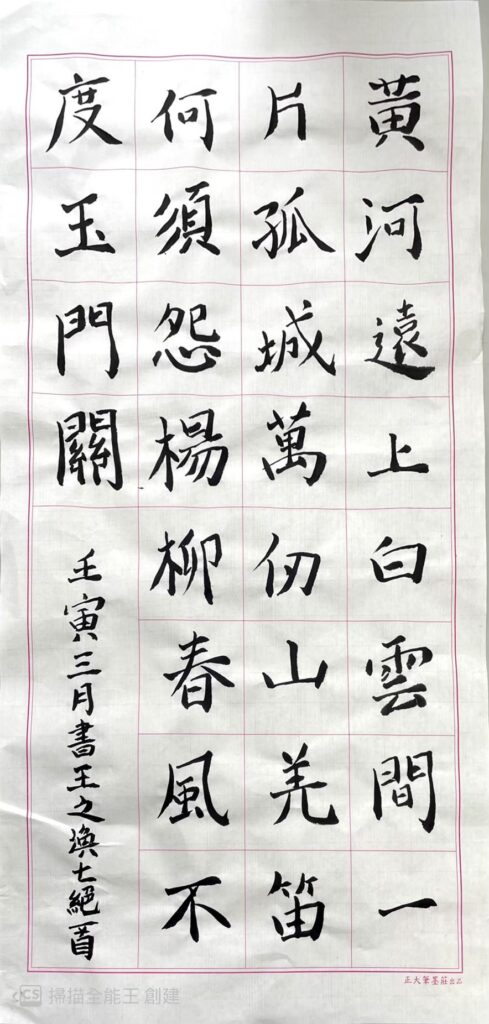 黃河遠上白雲間一
片孤城萬仞山羌笛
何須怨楊柳春風不
度玉門關
壬寅三月書王之渙七絕一首
正大筆墨莊出品
CS 掃描全能王 創建